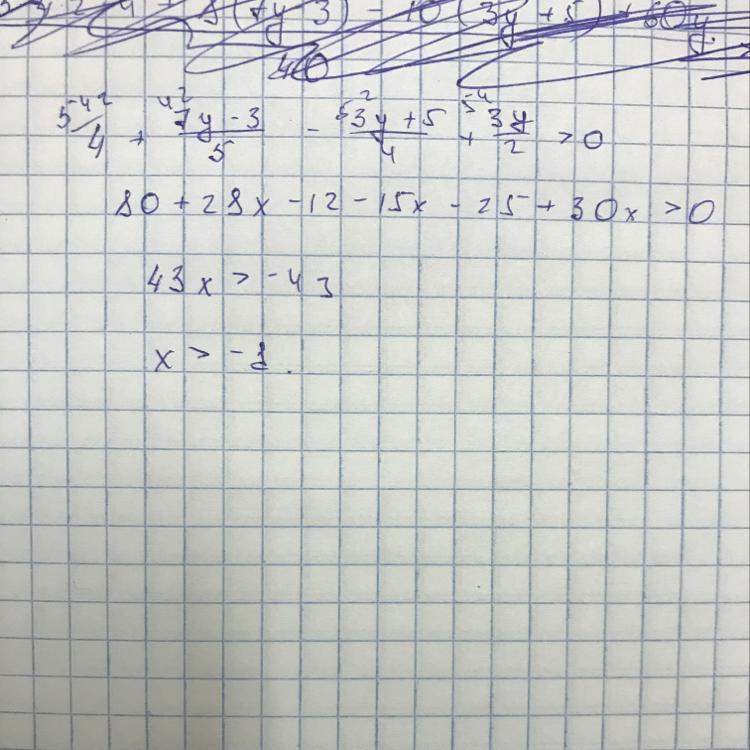 8(7y 3) - 10 (3y + 5) + 60y
40
5 4 2 4 2 5 2 5 4
4 + 7y - 3 / 5 - 3y + 5 / 4 + 3y / 2 > 0
80 + 28x - 12 - 15x - 25 + 30x > 0
43x > -43
x > -1.